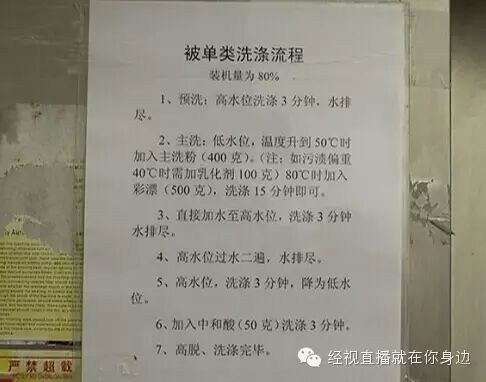 被单类洗涤流程
装机量为80%
1、预洗：高水位洗涤3分钟，水排
尽。
2、主洗：低水位，温度升到50℃时
加入主洗粉（400克）。（注：如污渍偏重
40℃时需加乳化剂100克）80℃时加入
彩漂（500克），洗涤15分钟即可。
3、直接加水至高水位，洗涤3分钟
水排尽。
4、高水位过水二遍，水排尽。
5、高水位，洗涤3分钟，降为低水
位。
6、加入中和酸（50克）洗涤3分钟。
7、高脱、洗涤完毕。
严禁超载
经视直播就在你身边